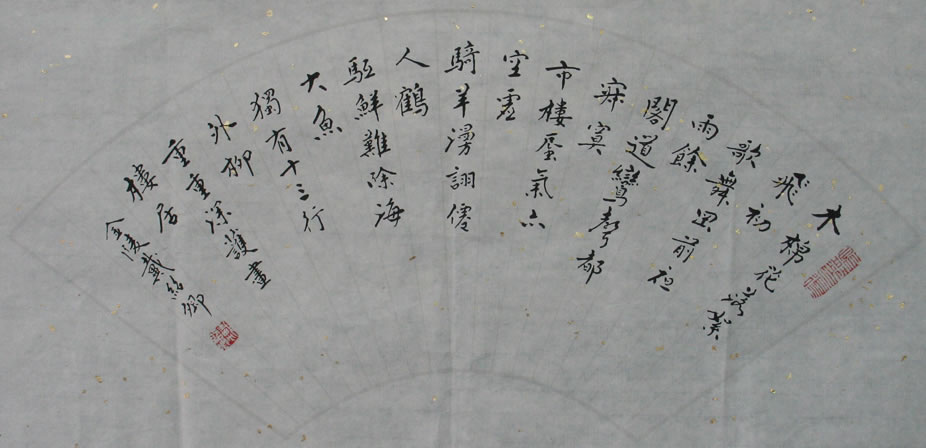 木棉花落葵
飛初
歌舞岡前夜
雨餘
閣道鶯聲都
寂寞
市樓蜃氣亦
空虛
騎羊漫詡僊
人鶴
駈鮮難除海
大魚
獨有十三行
外柳
重重深護畫
樓居
金陵戴紹卿